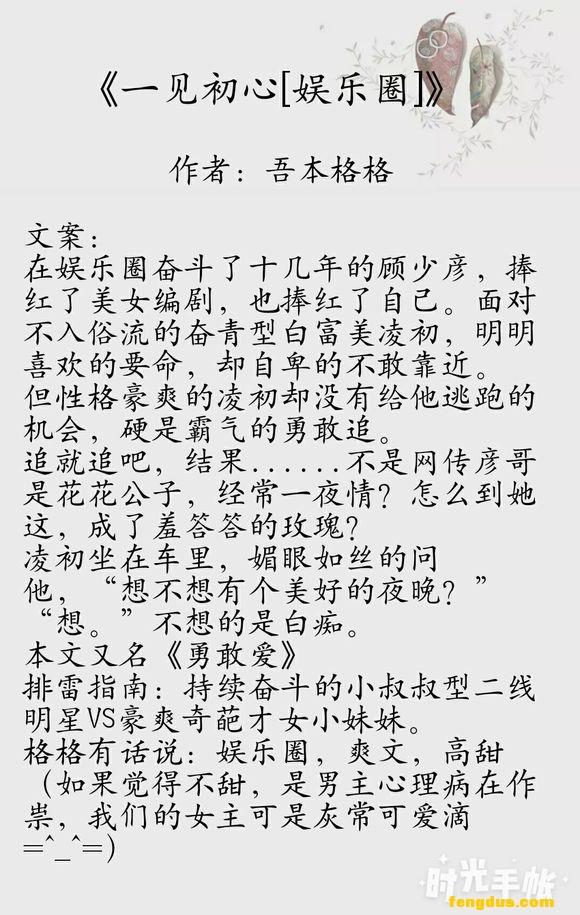 《一见初心[娱乐圈]》
作者：吾本格格
文案：
在娱乐圈奋斗了十几年的顾少彦，捧
红了美女编剧，也捧红了自己。面对
不入俗流的奋青型白富美凌初，明明
喜欢的要命，却自卑的不敢靠近。
但性格豪爽的凌初却没有给他逃跑的
机会，硬是霸气的勇敢追。
追就追吧，结果......不是网传彦哥
是花花公子，经常一夜情？怎么到她
这，成了羞答答的玫瑰？
凌初坐在车里，媚眼如丝的问
他，“想不想有个美好的夜晚？”
“想。”不想的是白痴。
本文又名《勇敢爱》
排雷指南：持续奋斗的小叔叔型二线
明星VS豪爽奇葩才女小妹妹。
格格有话说：娱乐圈，爽文，高甜
（如果觉得不甜，是男主心理病在作
祟，我们的女主可是灰常可爱滴
=^_^=）
时光手帐
fengdus.com